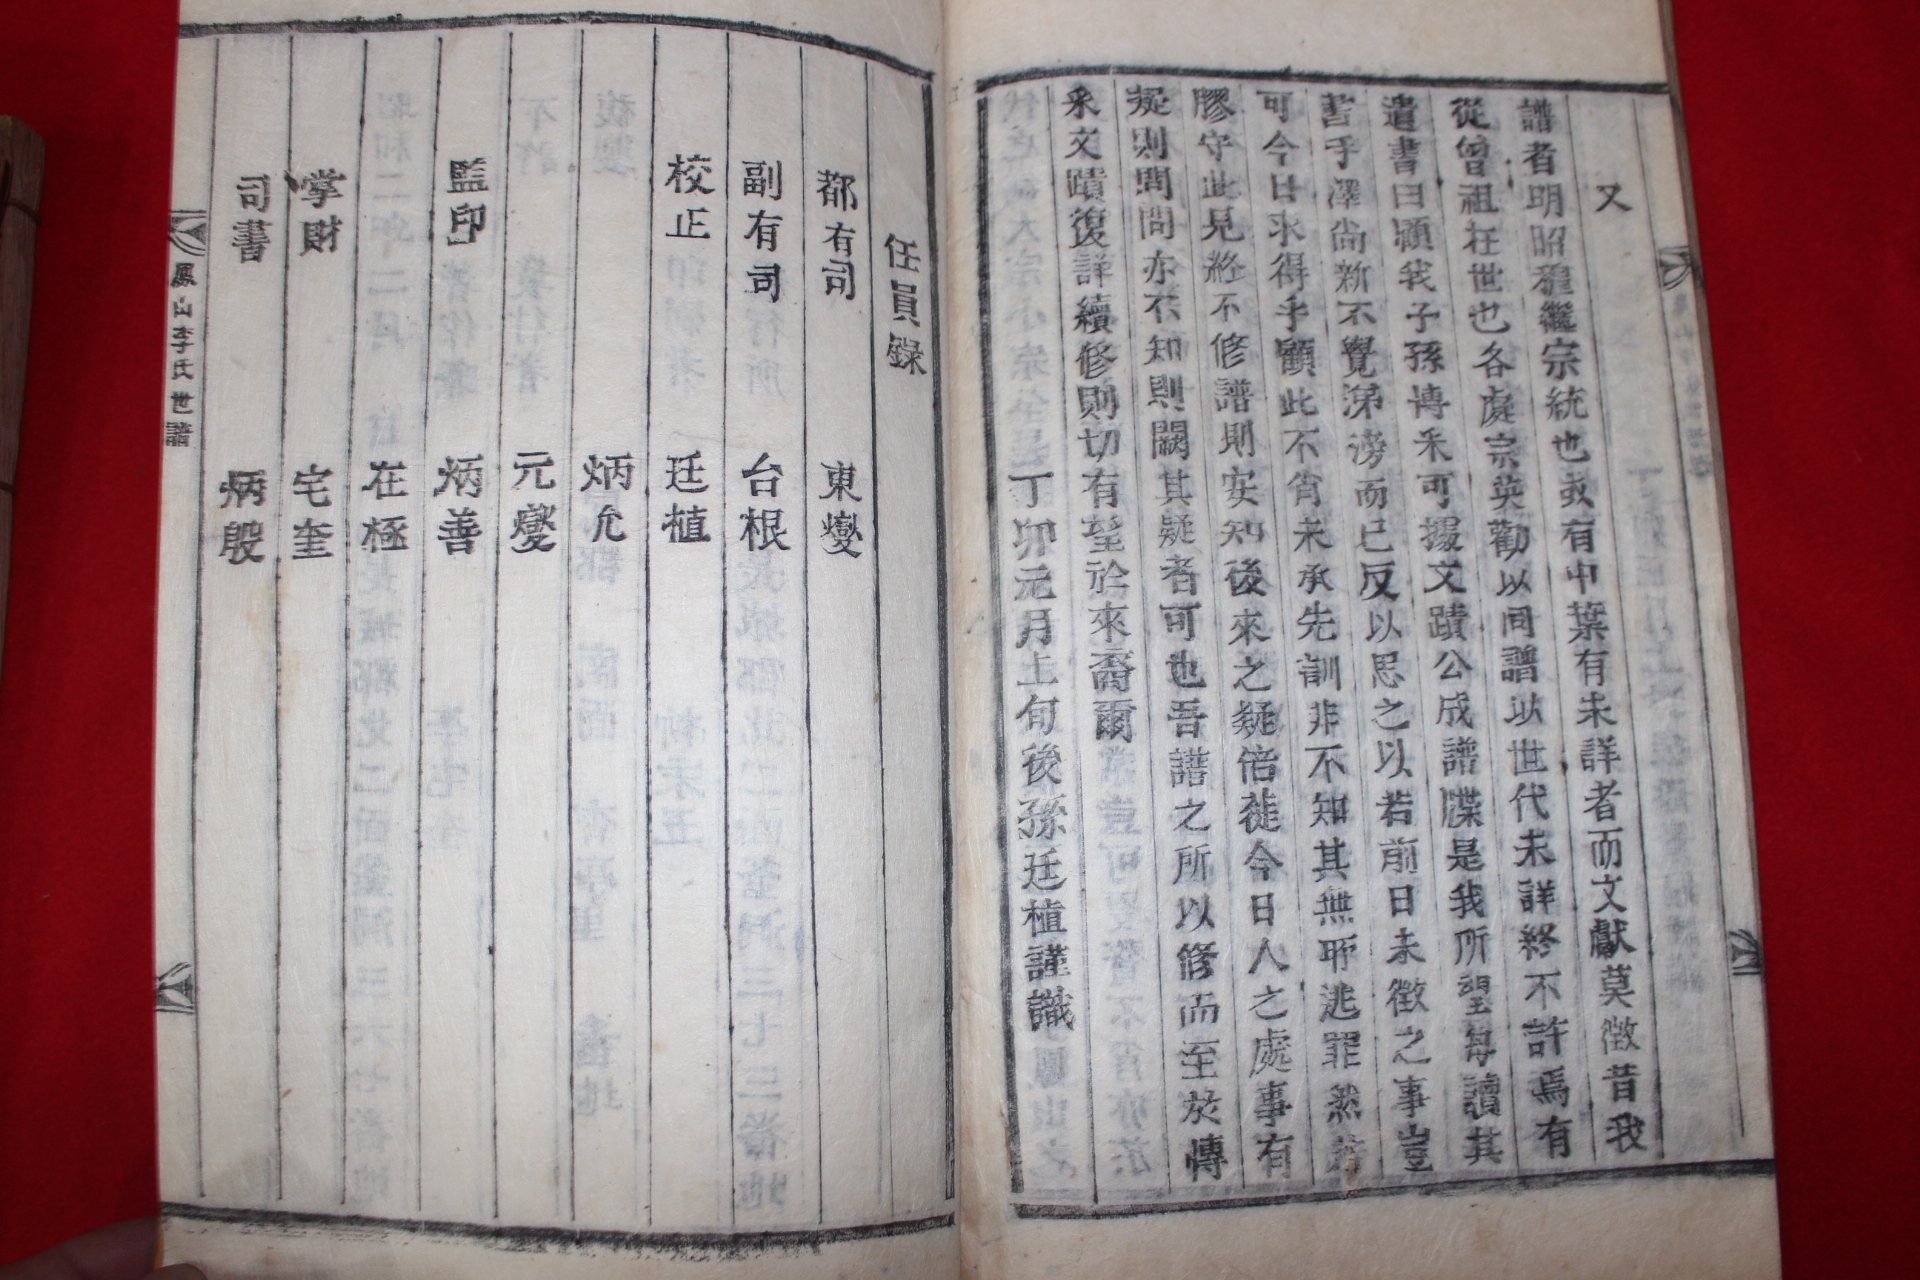 又
譜者明昭穆繼宗統也或有中葉有未詳者而文獻莫徵昔我
從曾祖在世也各處宗英勸以同譜以世代未詳終不許焉有
遺書曰願我子孫博采可掇文蹟公成譜牒是我所望每讀其
書手澤尙新不覺涕滂而已反以思之以若前日未徵之事豈
可今日求得乎顧此不肖未承先訓非不知其無所逃罪然若
膠守此見終不修譜則安知後來之疑倍徙今日人之處事有
疑則問問亦不知則闕其疑者可也吾譜之所以修而至於博
采文蹟復詳續修則切有望於來裔爾
丁卯元月上旬後孫廷植謹識
任員錄
都有司 東燮
副有司 台根
校正 廷植
炳允
元燮
監印 炳善
在極
掌財 宅奎
司書 炳殷
鳳山李氏世譜